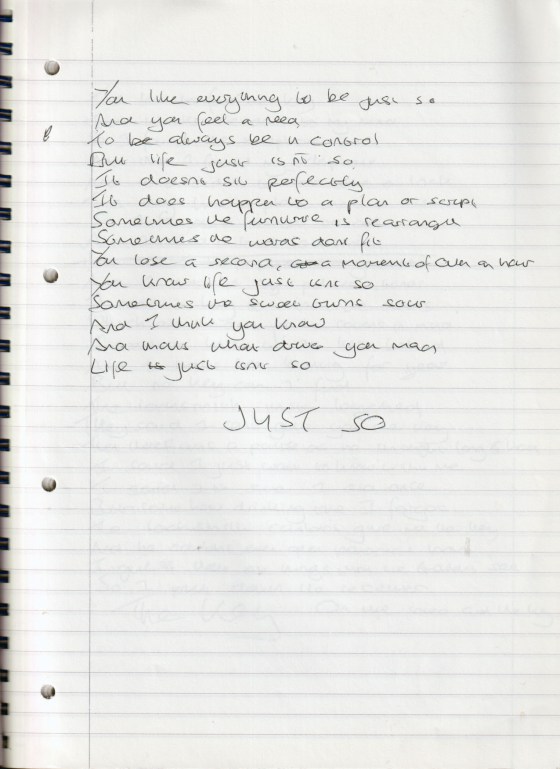 You like everything to be just so
And you feel a need
To be always be in control
But life just isnt so
It doesnt sit perfectly
It does happen to a plan or script
Sometimes the furniture is rearranged
Sometimes the words dont fit
You lose a second, a moment of even an hour
You know life just isnt so
Sometimes the sweet turns sour
And I think you know
And thats what drives you mad
Life just isnt so
JUST SO